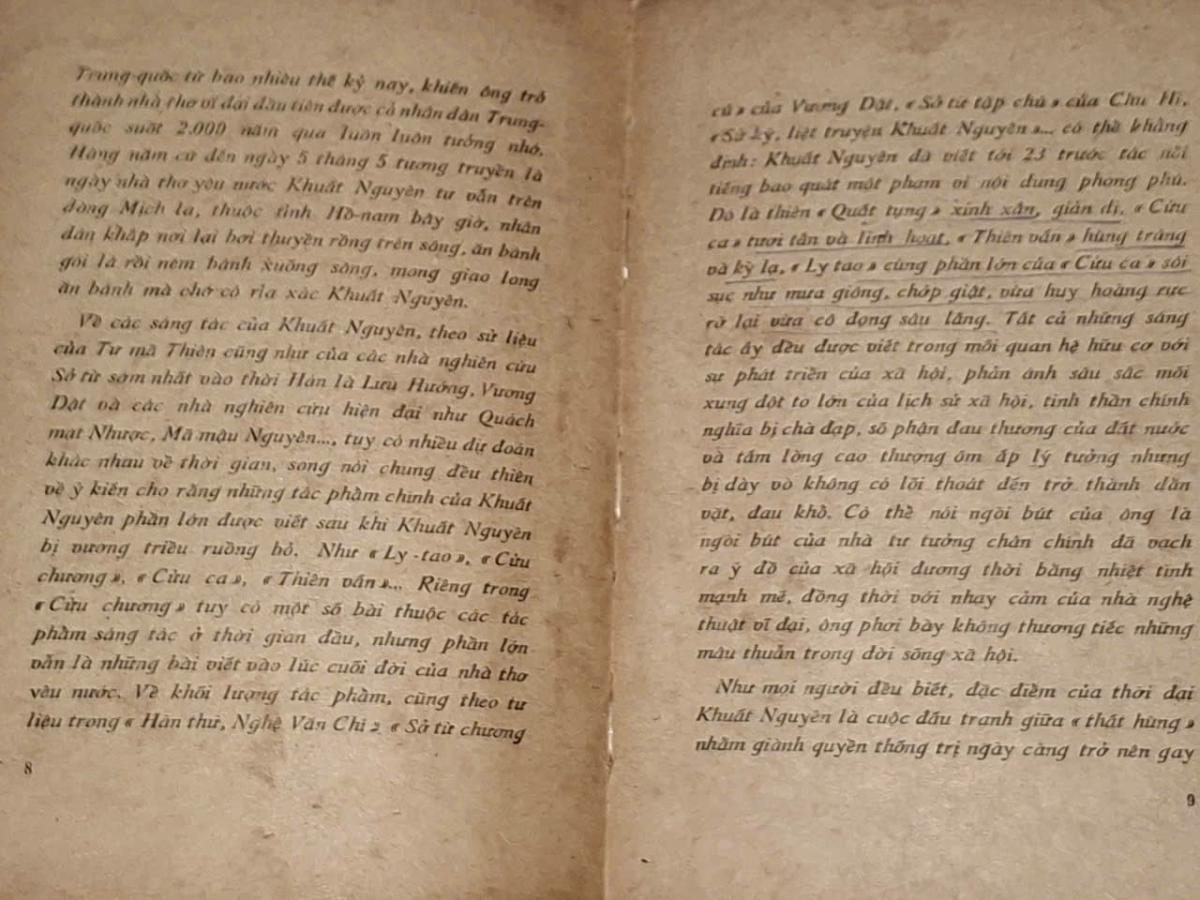 Trung-quốc từ bao nhiêu thế kỷ nay, khiến ông trở
thành nhà thơ vĩ đại đầu tiên được cả nhân dân Trung-
quốc suốt 2.000 năm qua luôn luôn tưởng nhớ.
Hàng năm cứ đến ngày 5 tháng 5 tương truyền là
ngày nhà thơ yêu nước Khuất Nguyên tự vẫn trên
dòng Mịch la, thuộc tỉnh Hồ-nam bây giờ, nhân
dân khắp nơi lại bơi thuyền rồng trên sông, ăn bánh
gói lá rồi ném bánh xuống sông, mong giao long
ăn bánh mà chớ có rỉa xác Khuất Nguyên.
Về các sáng tác của Khuất Nguyên, theo sử liệu
của Tư mã Thiên cũng như của các nhà nghiên cứu
Sở từ sớm nhất vào thời Hán là Lưu Hướng, Vương
Dật và các nhà nghiên cứu hiện đại như Quách
mạt Nhược, Mã mậu Nguyên..., tuy có nhiều dự đoán
khác nhau về thời gian, song nói chung đều thiên
về ý kiến cho rằng những tác phẩm chính của Khuất
Nguyên phần lớn được viết sau khi Khuất Nguyên
bị vương triều ruồng bỏ. Như « Ly-tao », « Cửu
chương », « Cửu ca », « Thiên vấn »... Riêng trong
« Cửu chương » tuy có một số bài thuộc các tác
phẩm sáng tác ở thời gian đầu, nhưng phần lớn
vẫn là những bài viết vào lúc cuối đời của nhà thơ
yêu nước. Về khối lượng tác phẩm, cũng theo tư
liệu trong « Hán thư, Nghệ Văn Chí », « Sở từ chương
8
cú » của Vương Dật, « Sở từ tập chú » của Chu Hi,
« Sử ký, liệt truyện Khuất Nguyên »... có thể khẳng
định: Khuất Nguyên đã viết tới 23 trước tác nổi
tiếng bao quát một phạm vi nội dung phong phú.
Đó là thiên « Quất tụng » xinh xắn, giản dị, « Cửu
ca » tươi tắn và linh hoạt, « Thiên vấn » hùng tráng
và kỳ lạ, « Ly tao » cùng phần lớn của « Cửu ca » sôi
sục như mưa giông, chớp giật, vừa huy hoàng rực
rỡ lại vừa cô đọng sâu lắng. Tất cả những sáng
tác ấy đều được viết trong mối quan hệ hữu cơ với
sự phát triển của xã hội, phản ánh sâu sắc mối
xung đột to lớn của lịch sử xã hội, tinh thần chính
nghĩa bị chà đạp, số phận đau thương của đất nước
và tấm lòng cao thượng ôm ấp lý tưởng nhưng
bị dày vò không có lối thoát đến trở thành dằn
vặt, đau khổ. Có thể nói ngòi bút của ông là
ngòi bút của nhà tư tưởng chân chính đã vạch
ra ý đồ của xã hội đương thời bằng nhiệt tình
mạnh mẽ, đồng thời với nhạy cảm của nhà nghệ
thuật vĩ đại, ông phơi bày không thương tiếc những
mâu thuẫn trong đời sống xã hội.
Như mọi người đều biết, đặc điểm của thời đại
Khuất Nguyên là cuộc đấu tranh giữa « thất hùng »
nhằm giành quyền thống trị ngày càng trở nên gay
9